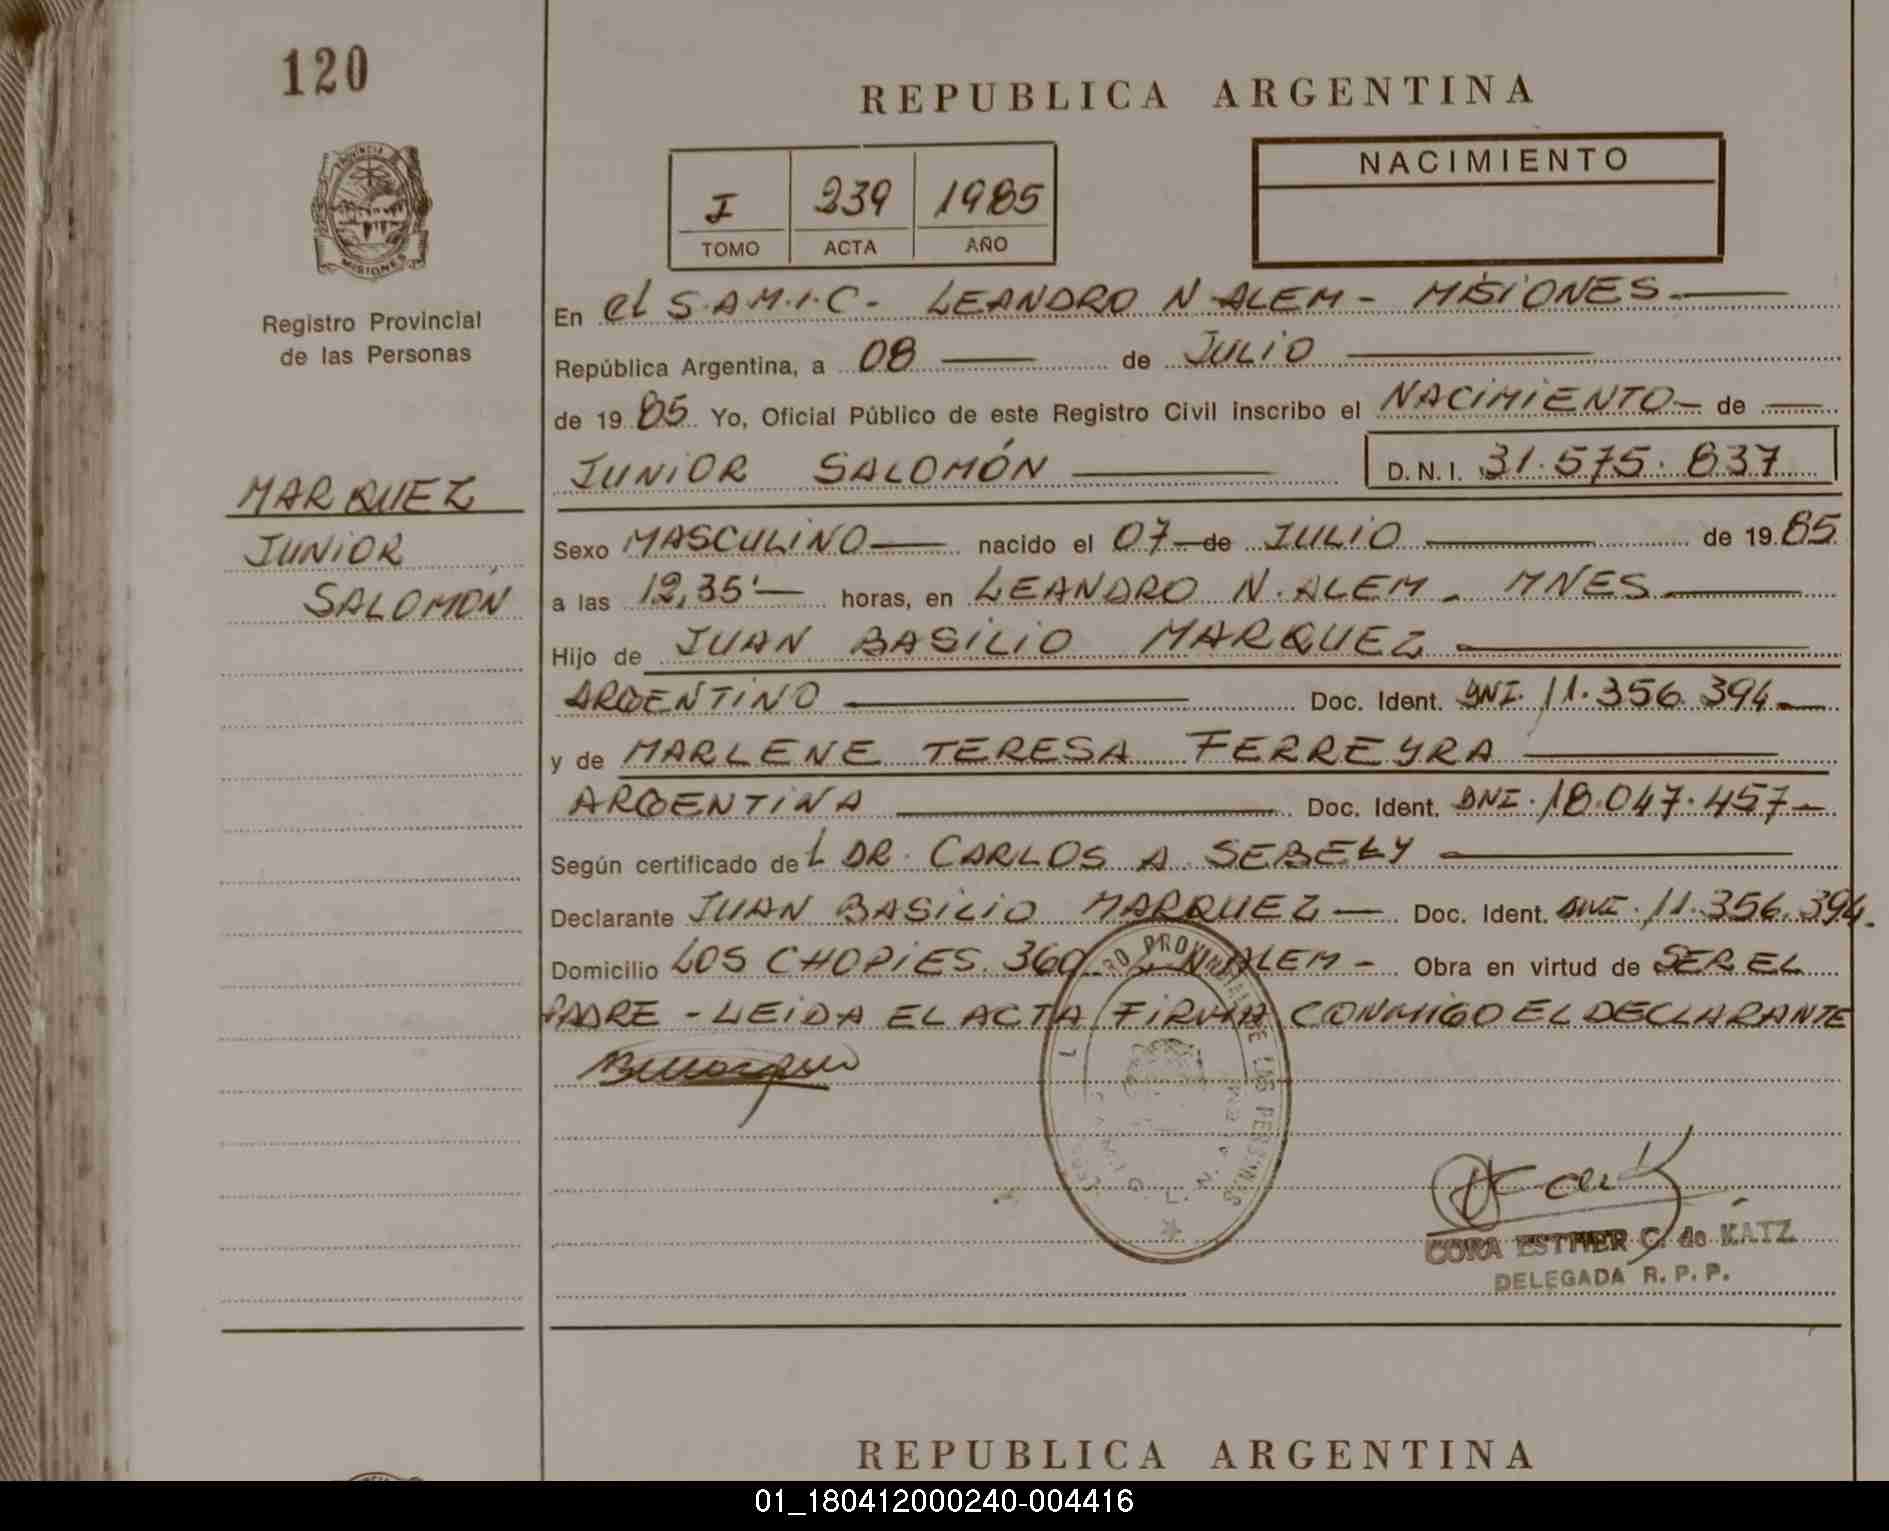 120
REPUBLICA ARGENTINA
NACIMIENTO
I 239 1985
TOMO ACTA AÑO
PROVINCIA
MISIONES
Registro Provincial
de las Personas
MARQUEZ
JUNIOR
SALOMÓN
En el S.A.M.I.C- LEANDRO N ALEM - MISIONES
República Argentina, a 08 de JULIO
de 1985 Yo, Oficial Público de este Registro Civil inscribo el NACIMIENTO de
JUNIOR SALOMÓN D.N.I. 31.575.837
Sexo MASCULINO nacido el 07 de JULIO de 1985
a las 12,35' horas, en LEANDRO N. ALEM - MNES
Hijo de JUAN BASILIO MARQUEZ
ARGENTINO Doc. Ident. DNI. 11.356.394
y de MARLENE TERESA FERREYRA
ARGENTINA Doc. Ident. DNI. 18.047.457
Según certificado del DR. CARLOS A. SEBELY
Declarante JUAN BASILIO MARQUEZ Doc. Ident. DNI. 11.356.394.
Domicilio LOS CHOPIES. 360 N ALEM - Obra en virtud de SER EL
PADRE - LEIDA EL ACTA FIRMA CONMIGO EL DECLARANTE
CORA ESTHER C. de KATZ
DELEGADA R. P. P.
REPUBLICA ARGENTINA
01_180412000240-004416